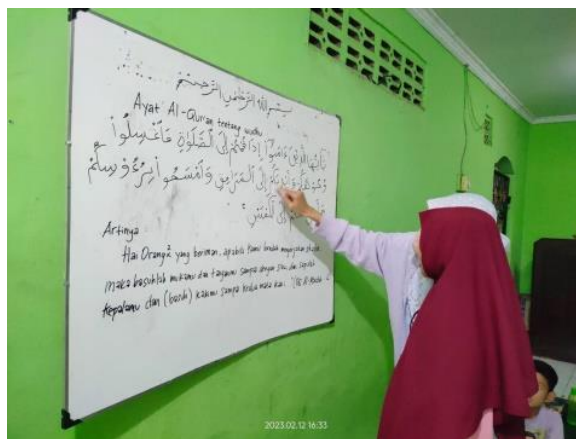 بسم الله الرحمن الرحيم
Ayat Al-Qur'an tentang wudhu
يَاأَيُّهَا الَّذِيْنَ ءَامَنُوْا إِذَا قُمْتُمْ إِلَى الصَّلَوٰةِ فَاغْسِلُوْا
إِلَى الْمَرَافِقِ وَامْسَحُوْا بِرُءُوْسِكُمْ
Artinya
Hai Orang² yang beriman, apabila kamu hendak mengerjakan
maka basuhlah mukamu dan tanganmu sampai dengan siku, dan sapulah
kepalamu dan (basuh) kakimu sampai kedua mata kaki.
2023.02.12 16:33